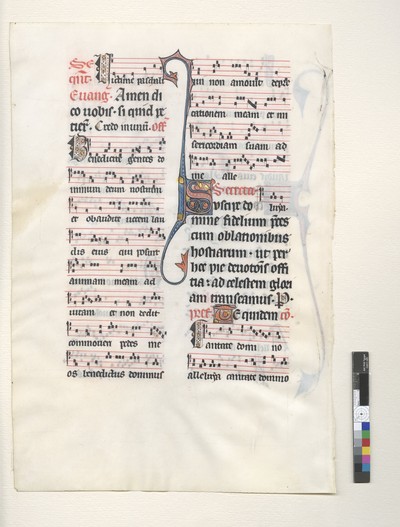 Euang. Amen di
co uobis. si quid pe
Credo in unum. off
Benedicite gentes do
minum deum nostrum
et obaudite uocem lau
dis eius qui posuit
animam meam ad
uitam et non dedit
commoueri pedes me
os benedictus dominus
qui non amouit depre
cationem meam et mi
sericordiam suam ad
me alle
Secreta
luya
Suscipe do
mine fidelium preces
cum oblationibus
hostiarum. ut per
hec pie deuotionis offi
tia: ad celestem glori
am transeamus. P.
pref. Te quidem co.
Cantate domi no
alleluya cantate domino